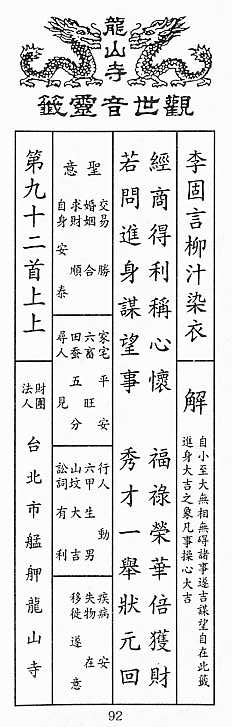 龍山寺
觀世音靈籤
李固言柳汁染衣
解
自小至大無相無碍諸事遂吉謀望自在此籤
進身大吉之象凡事操心大吉
經商得利稱心懷 福祿榮華倍獲財
若問進身謀望事 秀才一舉狀元回
聖意
交易 勝
婚姻 合
求財 順
自身 安泰
家宅 平安
六畜 旺
田蚕 五分
尋人 見
行人 動
六甲 生男
山坟 大吉
訟詞 有利
疾病 安
失物 在
移徙 遂意
第九十二首上上
財團法人 台北市艋舺龍山寺
92